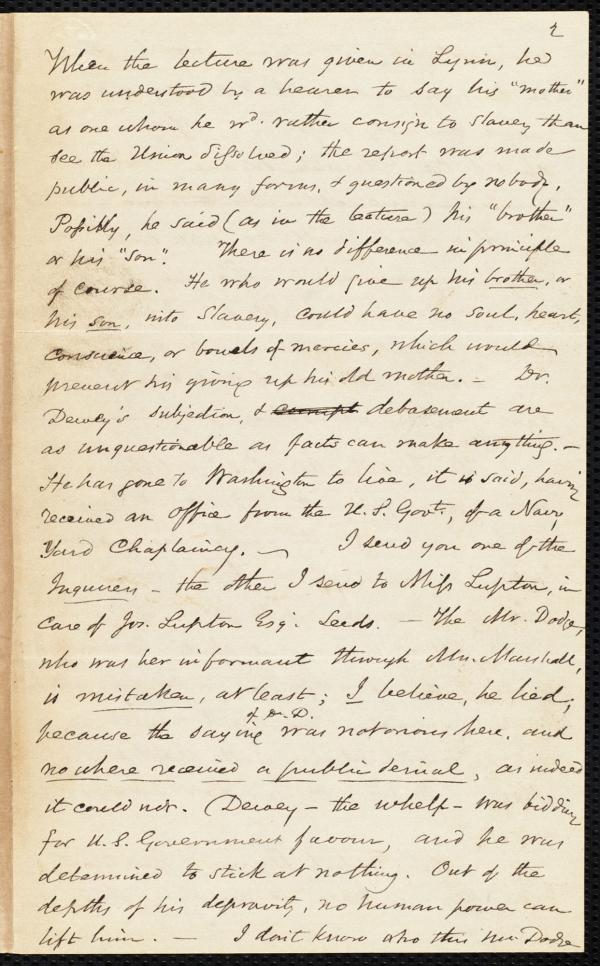 2
When the lecture was given in Lynn, he
was understood by a hearer to say his "mother"
as one whom he wd. rather consign to slavery than
see the Union dissolved; the report was made
public, in many forms, & questioned by nobody.
Possibly, he said (as in the lecture) his "brother"
or his "son". There is no difference in principle
of course. He who would give up his brother, or
his son, into Slavery, could have no soul, heart,
conscience, or bowels of mercies, which would
prevent his giving up his old mother. — Dr.
Dewey's subjection, & corrupt debasement are
as unquestionable as facts can make anything. —
He has gone to Washington to live, it is said, having
received an office from the U.S. Govt., of a Navy
Yard Chaplaincy. — I send you one of the
Inquirers — the other I send to Miss Lupton, in
care of Jos. Lupton Esq. Leeds. — The Mr. Dodge,
who was her informant through Mrs. Marshall,
is mistaken, at least; I believe, he lied;
of Dr. D.
because the saying was notorious here, and
no where received a public denial, as indeed
it could not. (Dewey — the whelp — was bidding
for U.S. Government favour, and he was
determined to stick at nothing. Out of the
depths of his depravity, no human power can
lift him. — I don't know who this Mr Dodge